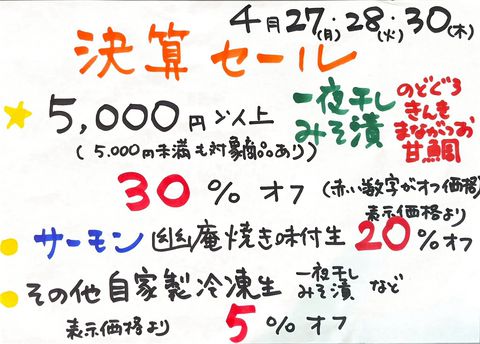 4月27(月)・28(火)・30(木)
決算セール
★5,000円以上
(5.000円未満も対象商品あり)
一夜干し
みそ漬
のどぐろ
きんき
まながつお
甘鯛
30%オフ
(赤い数字がオフ価格)
表示価格より
サーモン幽庵焼き味付生 20%オフ
その他自家製冷凍生
一夜干し
みそ漬
など
表示価格より 5%オフ